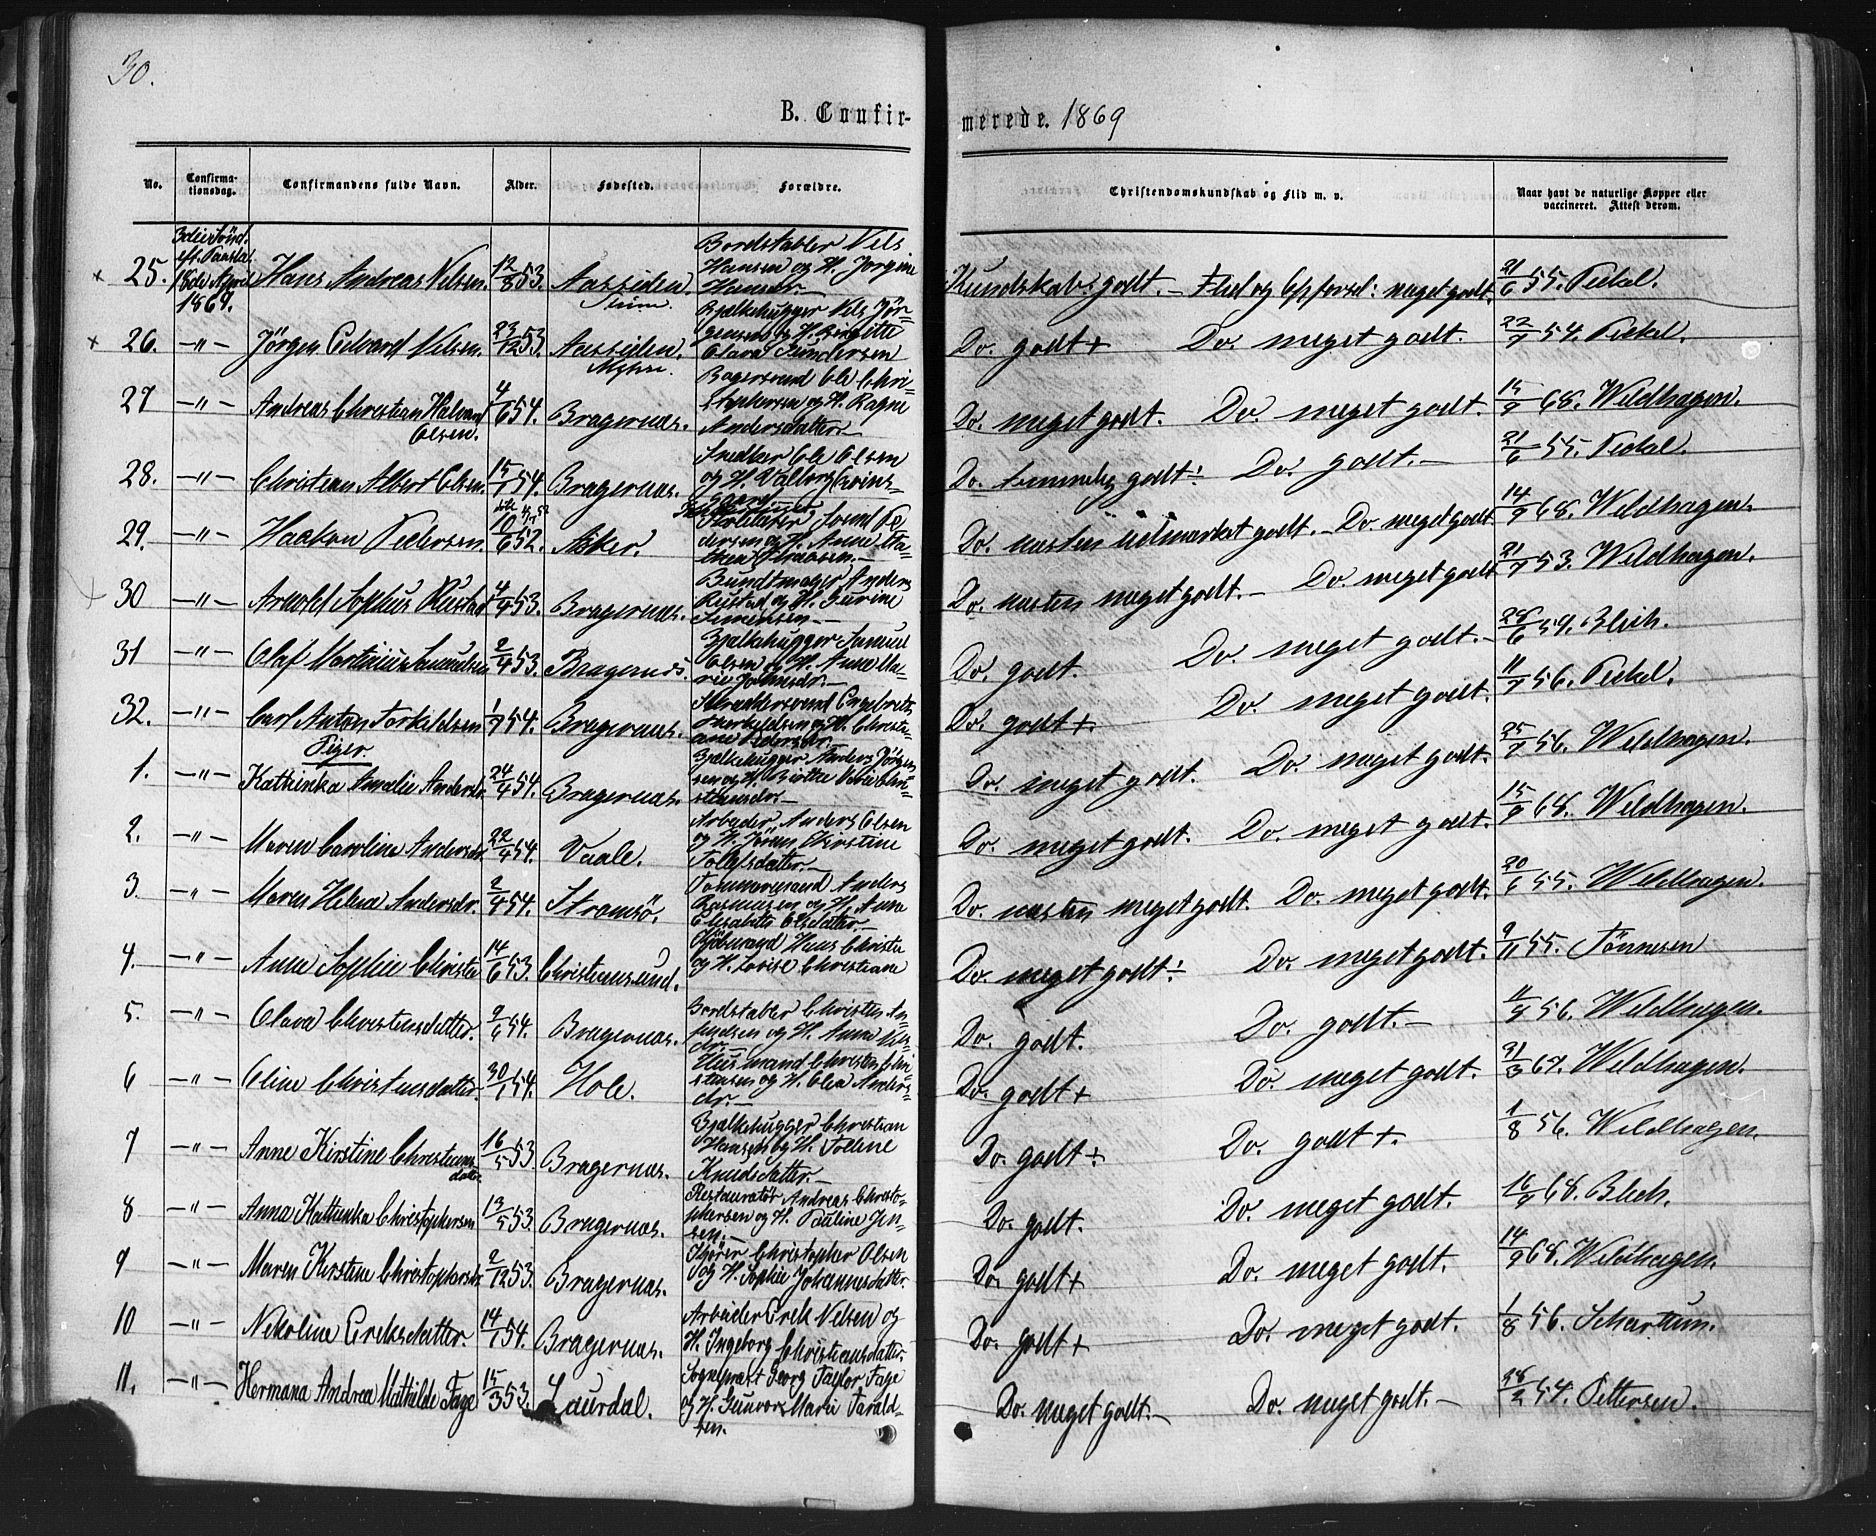 30.
B. Confir-
merede. 1869
No.
Confirma-
tionsdag.
Confirmandens fulde Navn.
Alder.
Fødested.
Forældre.
Christendomskundskab og Flid m. v.
Naar havt de naturlige Kopper eller
vaccineret. Attest derom.
3die Sönd.
eft. Paaske
18de April
1869.
× 25. Hans Andreas Nilsen. 12/8 53. Aassiden
Bordstabler Nils
Hansen og H. Jorgine
Kundskab: godt. - Flid og Opförsel: meget godt. 21/6 55. Pickel.
× 26. -"- Jörgen Edvard Nilsen. 23/12 53 Aassiden.
Bjelkehugger Nils Jör-
gensen og H. Birgitte
Olava Gundersen
Do. godt + Do. meget godt. 22/7 54. Pickel.
27 -"- Andreas Christian Halvand
Olsen. 4/6 54. Bragernæs.
Bagersvend Ole Chri-
stophersen og H. Ragne
Andersdatter.-
Do. meget godt. Do. meget godt. 15/9 68. Wildhagen.
28. -"- Christian Albert Olsen. 15/1 54. Bragernæs.
Snedker Ole Olsen
og H. Valborg
Do. temmelig godt ÷ Do. godt.- 21/6 55. Pickel.
29. -"- Haakon Pedersen 10/6 52. Asker.
Do. næsten udmærket godt. - Do. meget godt 14/9 68. Wildhagen.
30 -"- Arnold Sophus Rustad 4/4 53. Bragernæs.
Bundtmager Anders
Rustad og H. Gurine
Simensen.-
Do. næsten meget godt. - Do. meget godt 21/7 53. Wildhagen.
31 -"- Olaf Martinius Samuelsen 2/4 53. Bragernæs.
Bjelkehugger Samuel
Olsen og H. Anne Ma-
rie Johnsdr.-
Do. godt. Do. meget godt.- 28/6 59. Blich.
32. -"- Carl Anton Torkildsen 1/7 54. Bragernæs.
Skræddersvend Engebret
Thorkildsen og H. Christi-
ane Pedersdr.
Do. godt + Do. meget godt. 11/7 56. Pickel.
Piger.
1. -"- Kathinka Amalie Andersdr. 24/4 54. Bragernæs.
Bjelkehugger Anders Jörgen
sen og H.
stiansdr.-
Do. meget godt. Do. meget godt. 25/7 56. Wildhagen.
2. -"- Maren Caroline Andersdr. 22/4 54. Vaale.
Arbeider Anders Olsen
og H. Jöran Kirstine
Tollefsdatter.-
Do. meget godt. Do. meget godt. 15/9 68. Wildhagen.
3. -"- Maren Helene Andersdr. 2/4 54. Stromsö.
Tömmermand Anders
Rasmusen og H. Anne
Elisabeth Olsdatter.-
Do. næsten meget godt. Do. meget godt. 20/6 55. Wildhagen.
4. -"- Anna Sophie Christie 14/6 53. Christiansund.
Kjöbmand Hans Christie
og H. Lovise Christiane
Do. meget godt ÷ Do. meget godt. 9/11 55. Tönnesen
5. -"- Olava Christensdatter. 9/6 54. Bragernæs.
Bordstabler Christen An-
findsen og H. Anne Nils-
dr.-
Do. godt. Do. godt.- 11/7 56. Wildhagen.
6 -"- Oline Christensdatter. 30/1 54. Hole.
Husmand Christen Chri
stensen og H. Olea Anders-
dr.-
Do. godt + Do. meget godt. 21/3 67. Wildhagen.
7 -"- Anne Kirstine Christians
datter 16/5 53. Bragernæs.
Bjelkehugger Christian
Hansen og H. Tolline
Knudsdatter.-
Do. godt ÷ Do. godt +. 1/8 56. Wildhagen.
8 -"- Anna Kathinka Christophersen 13/5 53. Bragernæs.
Restauratör Andreas Christo-
phersen og H. Pauline Jen-
sen.-
Do. godt. Do. meget godt. 16/9 68. Blich.
9 -"- Maren Kirstine Christophersdr. 2/12 53. Bragernæs.
Christopher Olsen
og H. Sophie Johannesdatter.
Do. godt + Do. meget godt. 14/9 68. Wildhagen.
10 -"- Nikoline Eriksdatter. 14/1 54. Bragernæs.
Arbeider Erik Nilsen og
H. Ingeborg Christiansdatter.
Do. godt + Do. meget godt. 1/8 56. Schartum.
11. -"- Hermana Andrea Mathilde Fage 15/3 53. Laurdal.
Sogneprest Georg Taylor Fage
og H. Gunvor Marie Tarald-
sen.
Do. meget godt.- Do. meget godt.- 28/2 54. Pettersen.